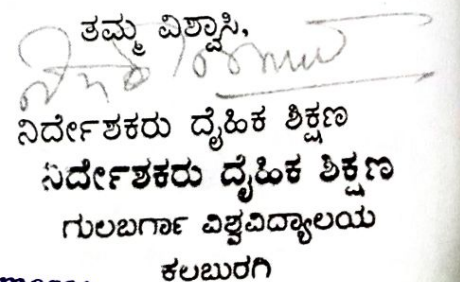 ತಮ್ಮ ವಿಶ್ವಾಸಿ,
ನಿರ್ದೇಶಕರು ದೈಹಿಕ ಶಿಕ್ಷಣ
ನಿರ್ದೇಶಕರು ದೈಹಿಕ ಶಿಕ್ಷಣ
ಗುಲಬರ್ಗಾ ವಿಶ್ವವಿದ್ಯಾಲಯ
ಕಲಬುರಗಿ